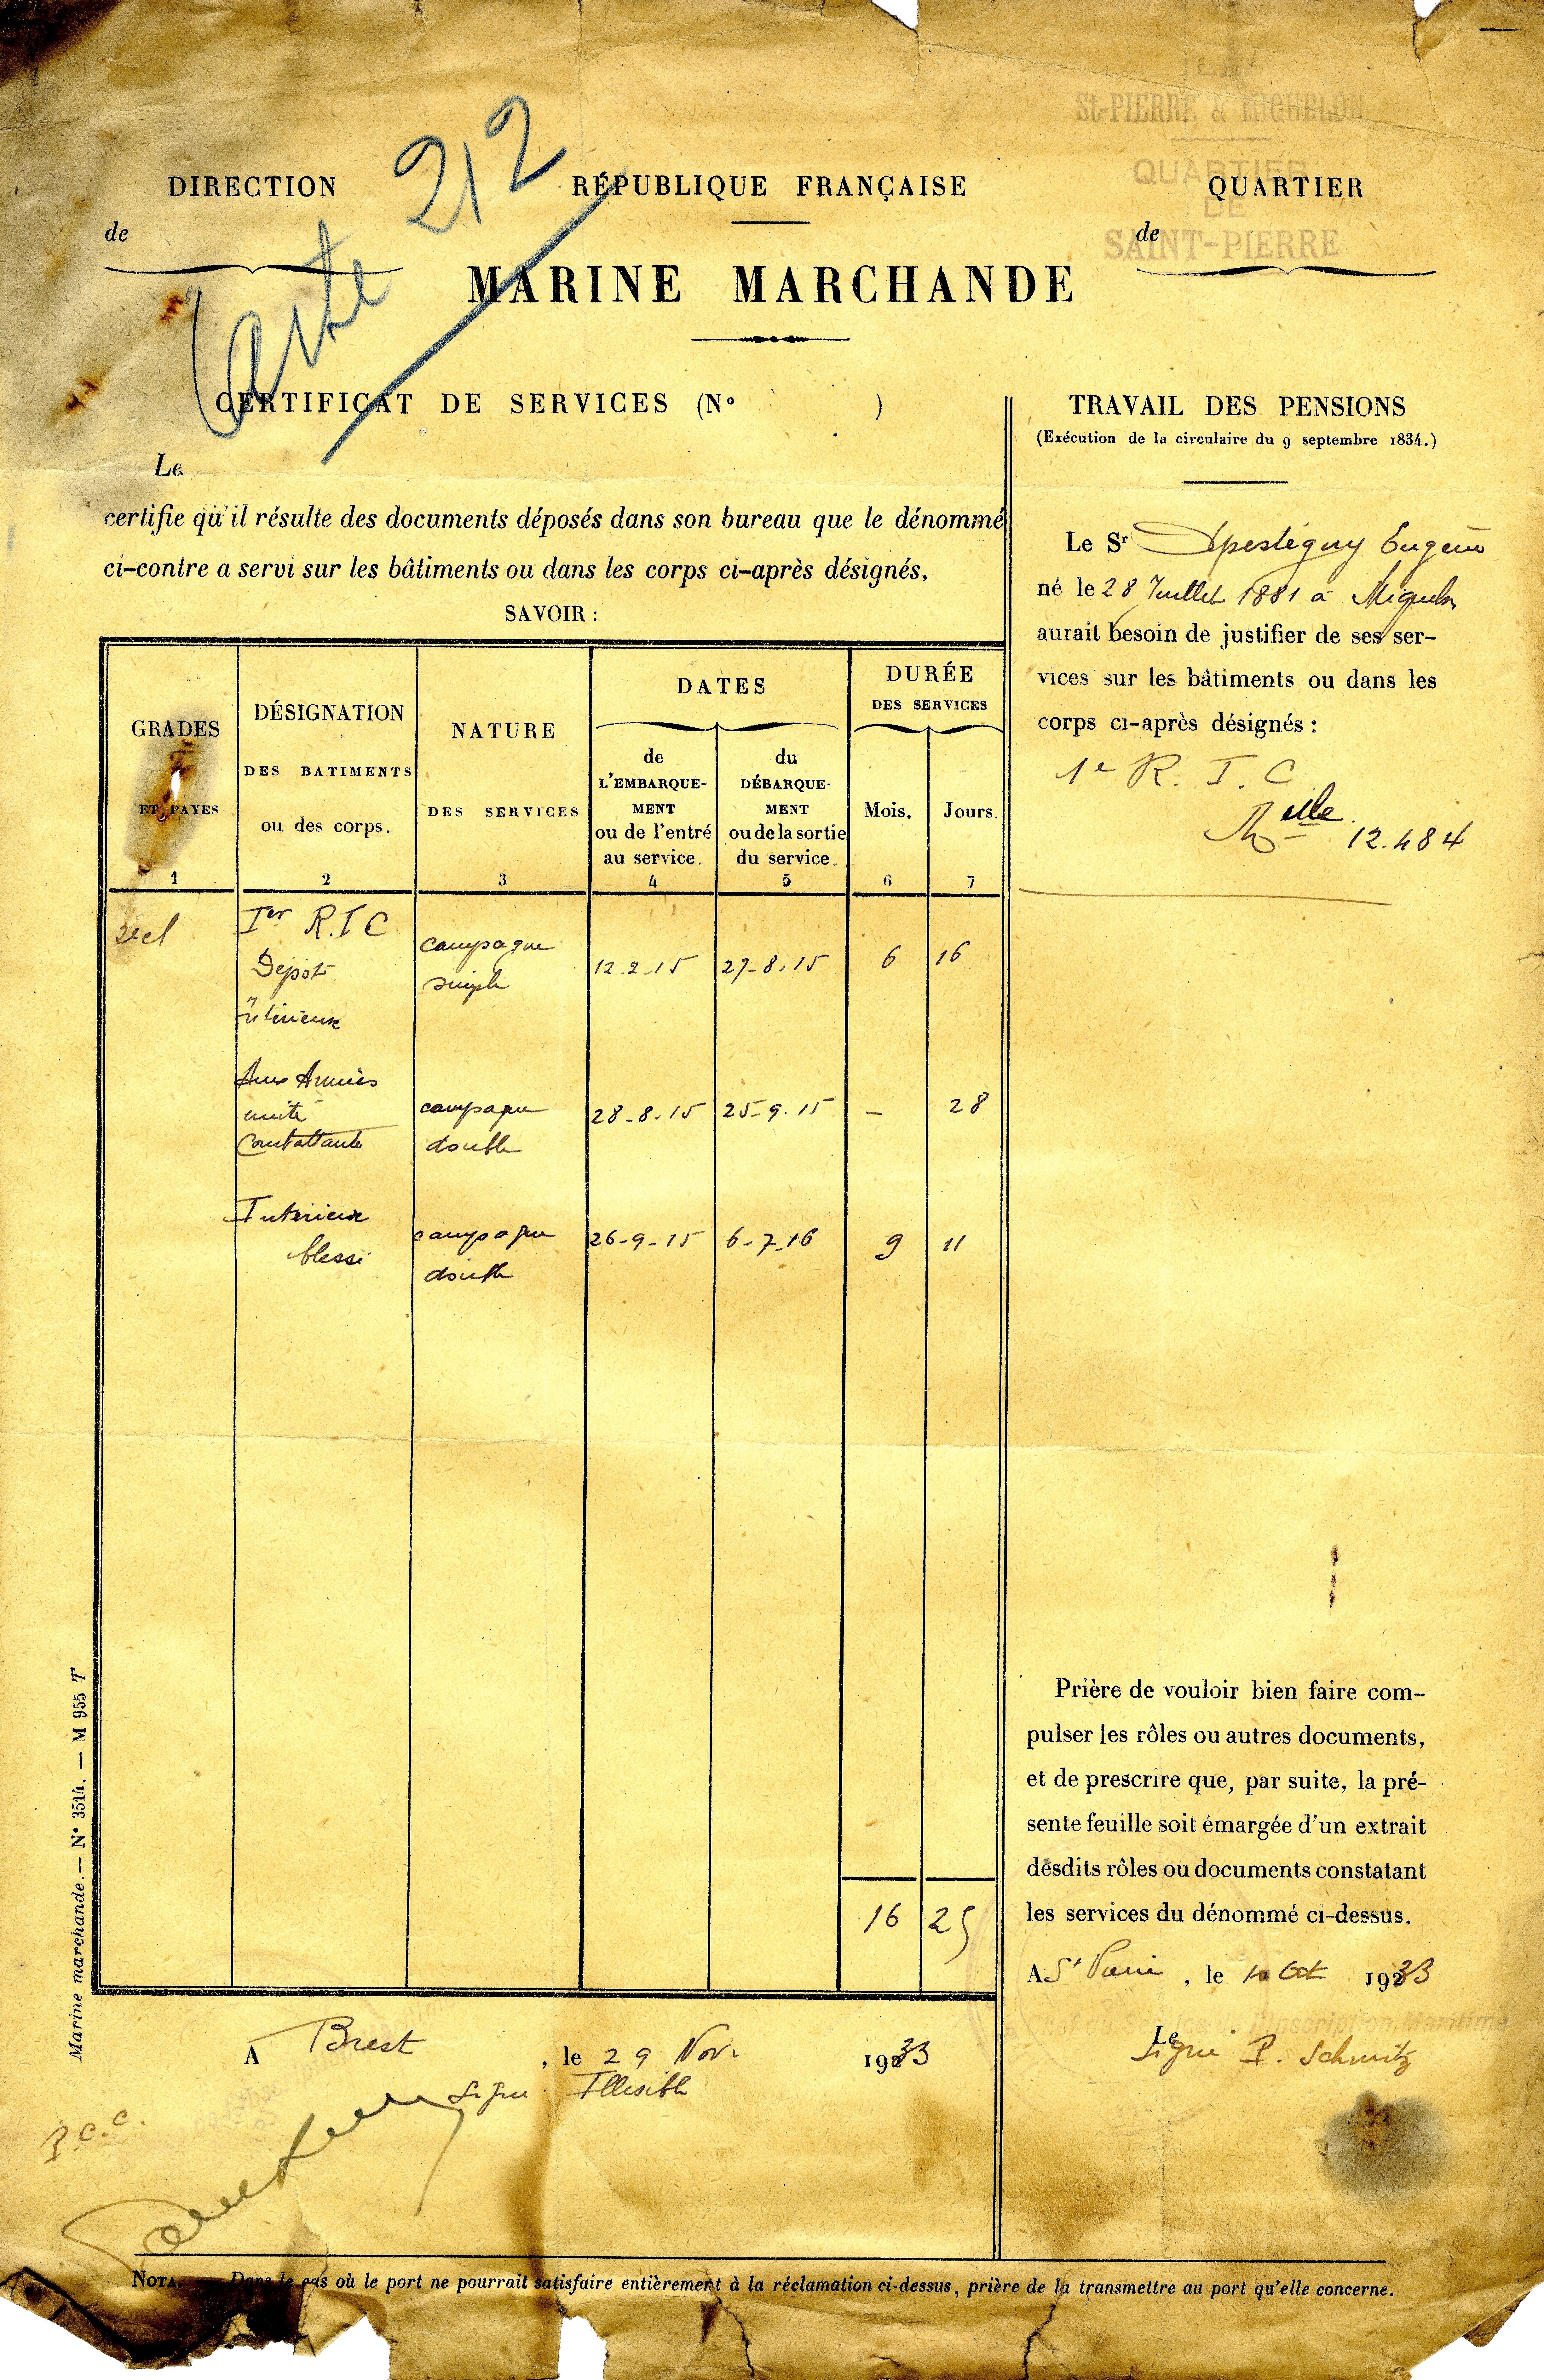 St-PIERRE & MIQUELON
QUARTIER
DE
SAINT-PIERRE
Carte 212
DIRECTION
de
RÉPUBLIQUE FRANÇAISE
MARINE MARCHANDE
QUARTIER
de
CERTIFICAT DE SERVICES (N° )
Le
certifie qu'il résulte des documents déposés dans son bureau que le dénommé
ci-contre a servi sur les bâtiments ou dans les corps ci-après désignés,
SAVOIR :
GRADES
ET PAYES
1
DÉSIGNATION
DES BATIMENTS
ou des corps.
2
NATURE
DES SERVICES
3
DATES
de
L'EMBARQUE-
MENT
ou de l'entré
au service.
4
du
DÉBARQUE-
MENT
ou de la sortie
du service.
5
DURÉE
DES SERVICES
Mois.
6
Jours.
7
Ier R.I C
Dépot
intérieur
campagne
simple
12.2.15
27-8.15
6
16
Aux Armées
unité
Combattante
campagne
double
28-8.15
25-9.15
–
28
Interieur
blessé
campagne
double
26-9-15
6-7-16
9
11
16
25
A Brest , le 29 Nov. 1933
Signé Illisible
P.C.C.
TRAVAIL DES PENSIONS
(Exécution de la circulaire du 9 septembre 1834.)
Le Sr Apestéguy Eugène
né le 28 Juillet 1881 à Miquelon
aurait besoin de justifier de ses ser-
vices sur les bâtiments ou dans les
corps ci-après désignés :
1e R. I. C
Mlle 12.484
Prière de vouloir bien faire com-
pulser les rôles ou autres documents,
et de prescrire que, par suite, la pré-
sente feuille soit émargée d'un extrait
desdits rôles ou documents constatant
les services du dénommé ci-dessus.
A St Pierre , le 10 Oct 1933
Inscription Maritime
Le
Signé P. Schmitz
Marine marchande. — N° 3514. — M 955 T
NOTA. Dans le cas où le port ne pourrait satisfaire entièrement à la réclamation ci-dessus, prière de la transmettre au port qu'elle concerne.